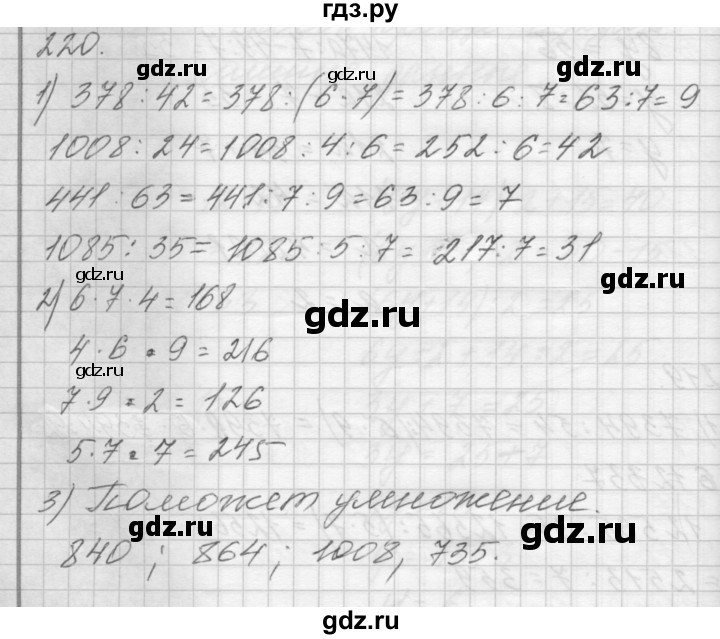 гдз.ру
220.
gdz.ru
gdz.ru
gdz.ru
1) 378 : 42 = 378 : (6 · 7) = 378 : 6 : 7 = 63 : 7 = 9
1008 : 24 = 1008 : 4 : 6 = 252 : 6 = 42
441 : 63 = 441 : 7 : 9 = 63 : 9 = 7
1085 : 35 = 1085 : 5 : 7 = 217 : 7 = 31
gdz.ru
gdz.ru
2) 6 · 7 · 4 = 168
gdz.ru
4 · 6 · 9 = 216
gdz.ru
7 · 9 · 2 = 126
5 · 7 · 7 = 245
3) Поможет умножение.
gdz.ru
gdz.ru
840 ; 864 ; 1008, 735.
gdz.ru